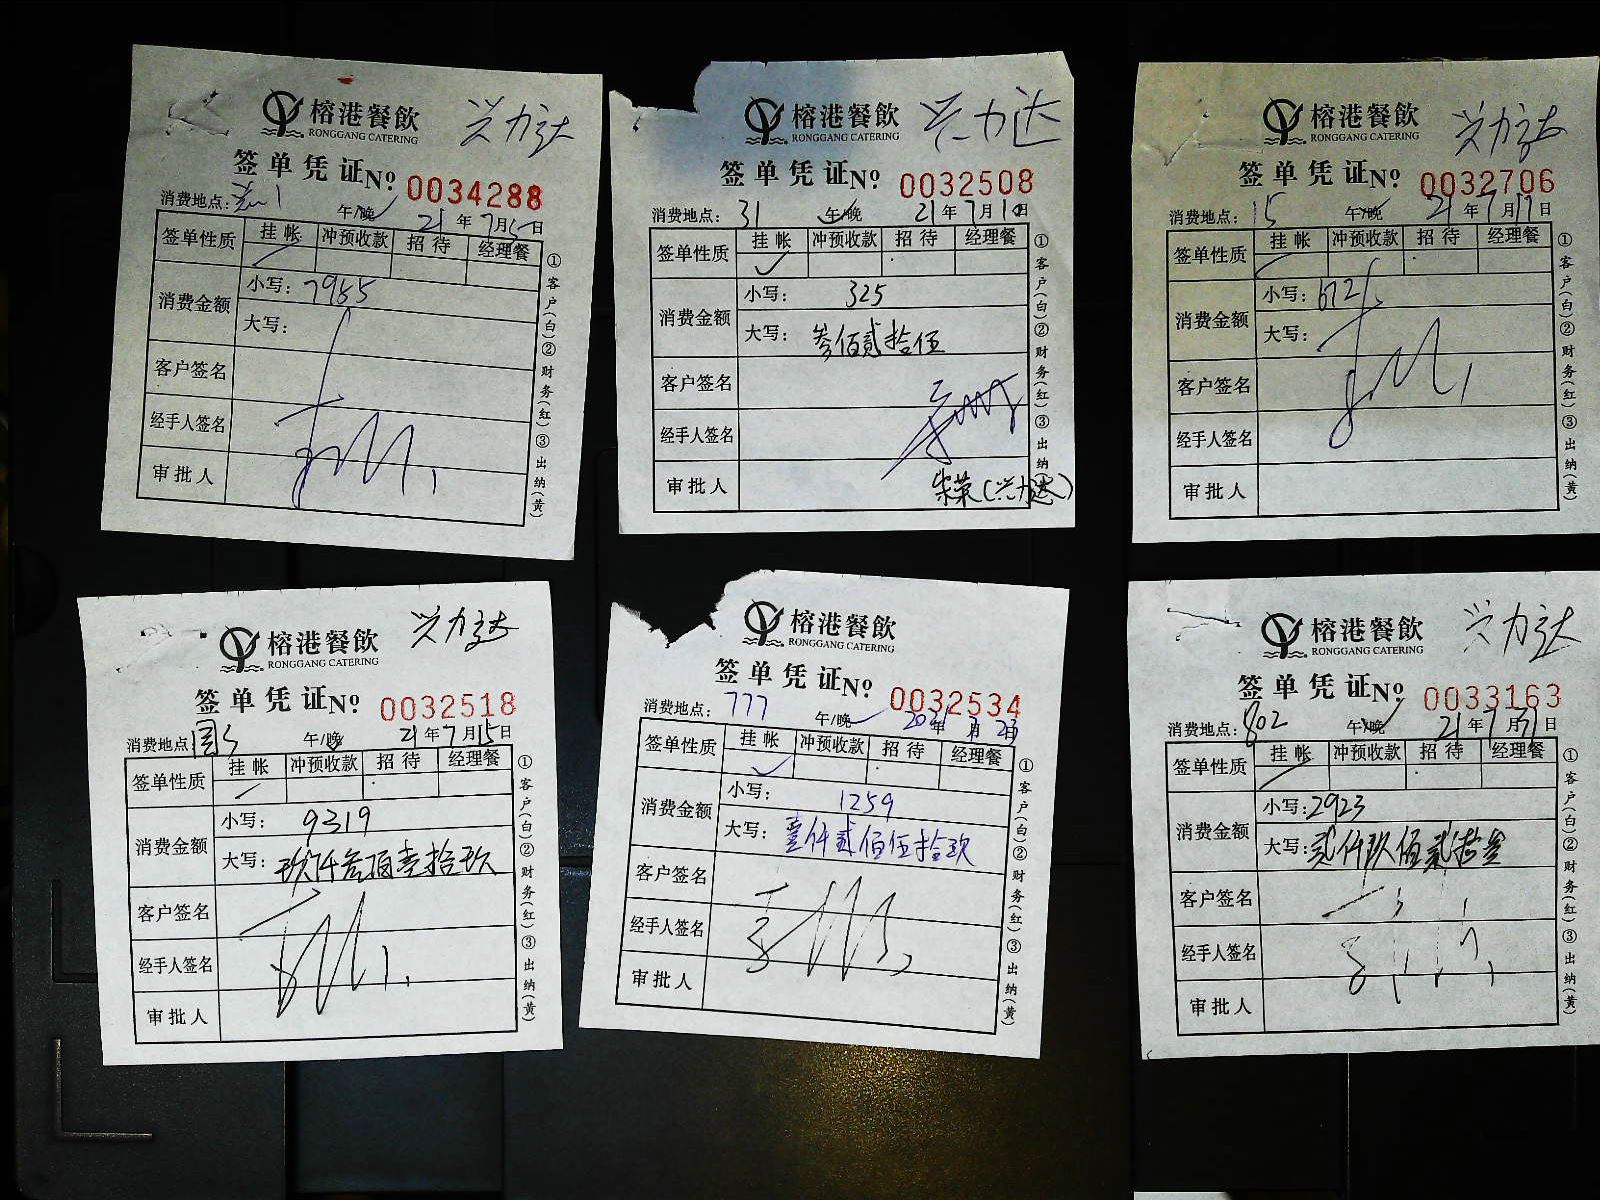 榕港餐飲 兴力达
RONGGANG CATERING
签单凭证 No 0034288
消费地点： 午/晚 21年7月5日
签单性质 挂帐 冲预收款 招待 经理餐
消费金额 小写：7955
大写：
客户签名
经手人签名
审批人
①客户(白)②财务(红)③出纳(黄)
榕港餐飲 兴力达
RONGGANG CATERING
签单凭证 No 0032508
消费地点：31 午/晚 21年7月10日
签单性质 挂帐 冲预收款 招待 经理餐
消费金额 小写：325
大写：叁佰贰拾伍
客户签名
经手人签名
审批人 朱荣(兴力达)
①客户(白)②财务(红)③出纳(黄)
榕港餐飲 兴力达
RONGGANG CATERING
签单凭证 No 0032706
消费地点：15 午/晚 21年7月17日
签单性质 挂帐 冲预收款 招待 经理餐
消费金额 小写：672
大写：
客户签名
经手人签名
审批人
①客户(白)②财务(红)③出纳(黄)
榕港餐飲 兴力达
RONGGANG CATERING
签单凭证 No 0032518
消费地点： 午/晚 21年7月15日
签单性质 挂帐 冲预收款 招待 经理餐
消费金额 小写：9319
大写：玖仟叁佰壹拾玖
客户签名
经手人签名
审批人
①客户(白)②财务(红)③出纳(黄)
榕港餐飲
RONGGANG CATERING
签单凭证 No 0032534
消费地点：777 午/晚 2021年7月23日
签单性质 挂帐 冲预收款 招待 经理餐
消费金额 小写：1259
大写：壹仟贰佰伍拾玖
客户签名
经手人签名
审批人
①客户(白)②财务(红)③出纳(黄)
榕港餐飲 兴力达
RONGGANG CATERING
签单凭证 No 0033163
消费地点：802 午/晚 21年7月31日
签单性质 挂帐 冲预收款 招待 经理餐
消费金额 小写：2923
大写：贰仟玖佰贰拾叁
客户签名
经手人签名
审批人
①客户(白)②财务(红)③出纳(黄)